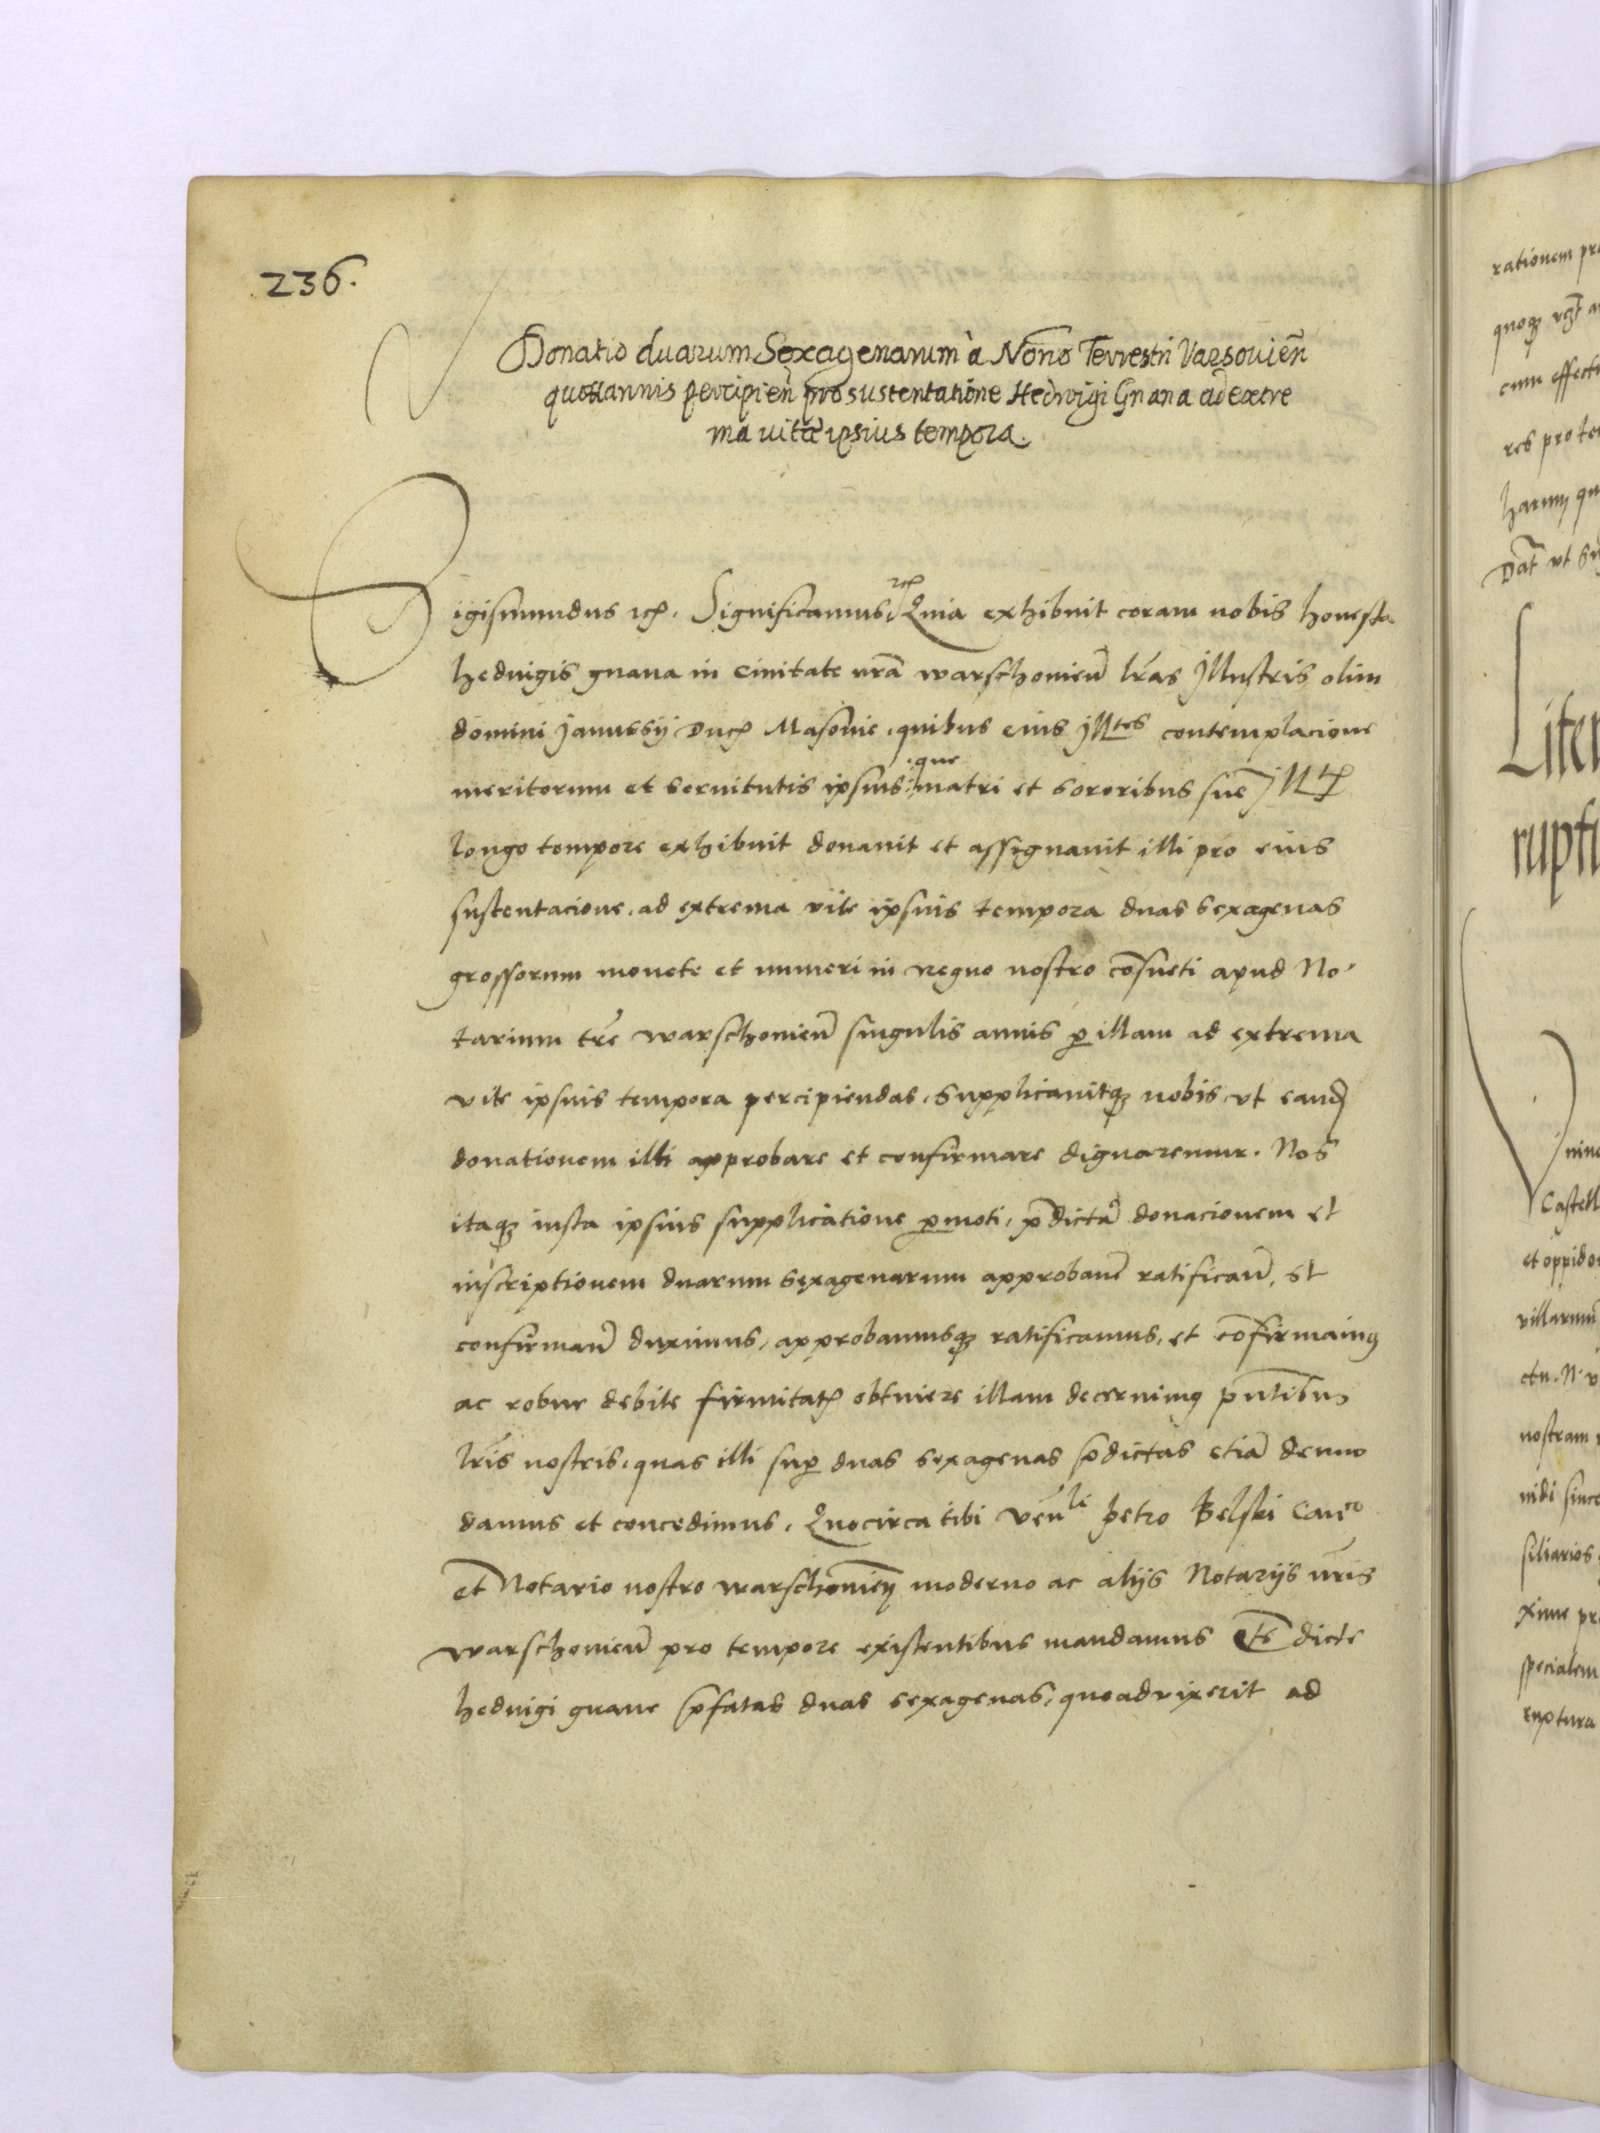 236.
Donatio duarum Sexagenarum à Nōrio Terrestri Varsovień
quottannis percipień pro sustentatione Hedvigi Gnana ad extre
ma vitæ ipsius tempora.
Sigismundus etc. Significamus etc. Quia exhibuit coram nobis honesta
heduigis gnana in Ciuitate nrã warschouień lr̃as Illustris olim
domini Janussij Duc Masouie, quibus eius Illtas contemplacione
meritorum et seruitutis ipsius que matri et sororibus sue Ill
longo tempore exhibuit donauit et assignauit illi pro eius
sustentacione, ad extrema vite ipsius tempora duas sexagenas
grossorum monete et numeri in regno nostro cõsueti apud No
tarium tr̃e warschouień singulis annis p illam ad extrema
vite ipsius tempora percipiendas, supplicauitq nobis, vt eand
donationem illi approbare et confirmare dignaremur. Nos
itaq iusta ipsius supplicatione pmoti, p̃dictã donacionem et
inscriptionem duarum sexagenarum approbañ ratificañ, et
confirmañ duximus, approbamusq ratificamus, et cõfirmamus
ac robur debite firmitatis obtinere illam decernimus pñtibus
lr̃is nostris, quas illi sup duas sexagenas p̃dictas etiã denuo
damus et concedimus. Quocirca tibi Veñli Petro Belski Canco
et Notario nostro warschouień moderno ac alijs Notarijs nr̃is
warschouień pro tempore existentibus mandamus dicte
heduigi gnane p̃fatas duas sexagenas, quoad vixerit ad
rationem
quoq
cum effectu
res pro
harum
Dat̃ vt
Liter
rupt
Castell
et oppido
villarum
nostram
siliarios
xime
specialem
ruptura